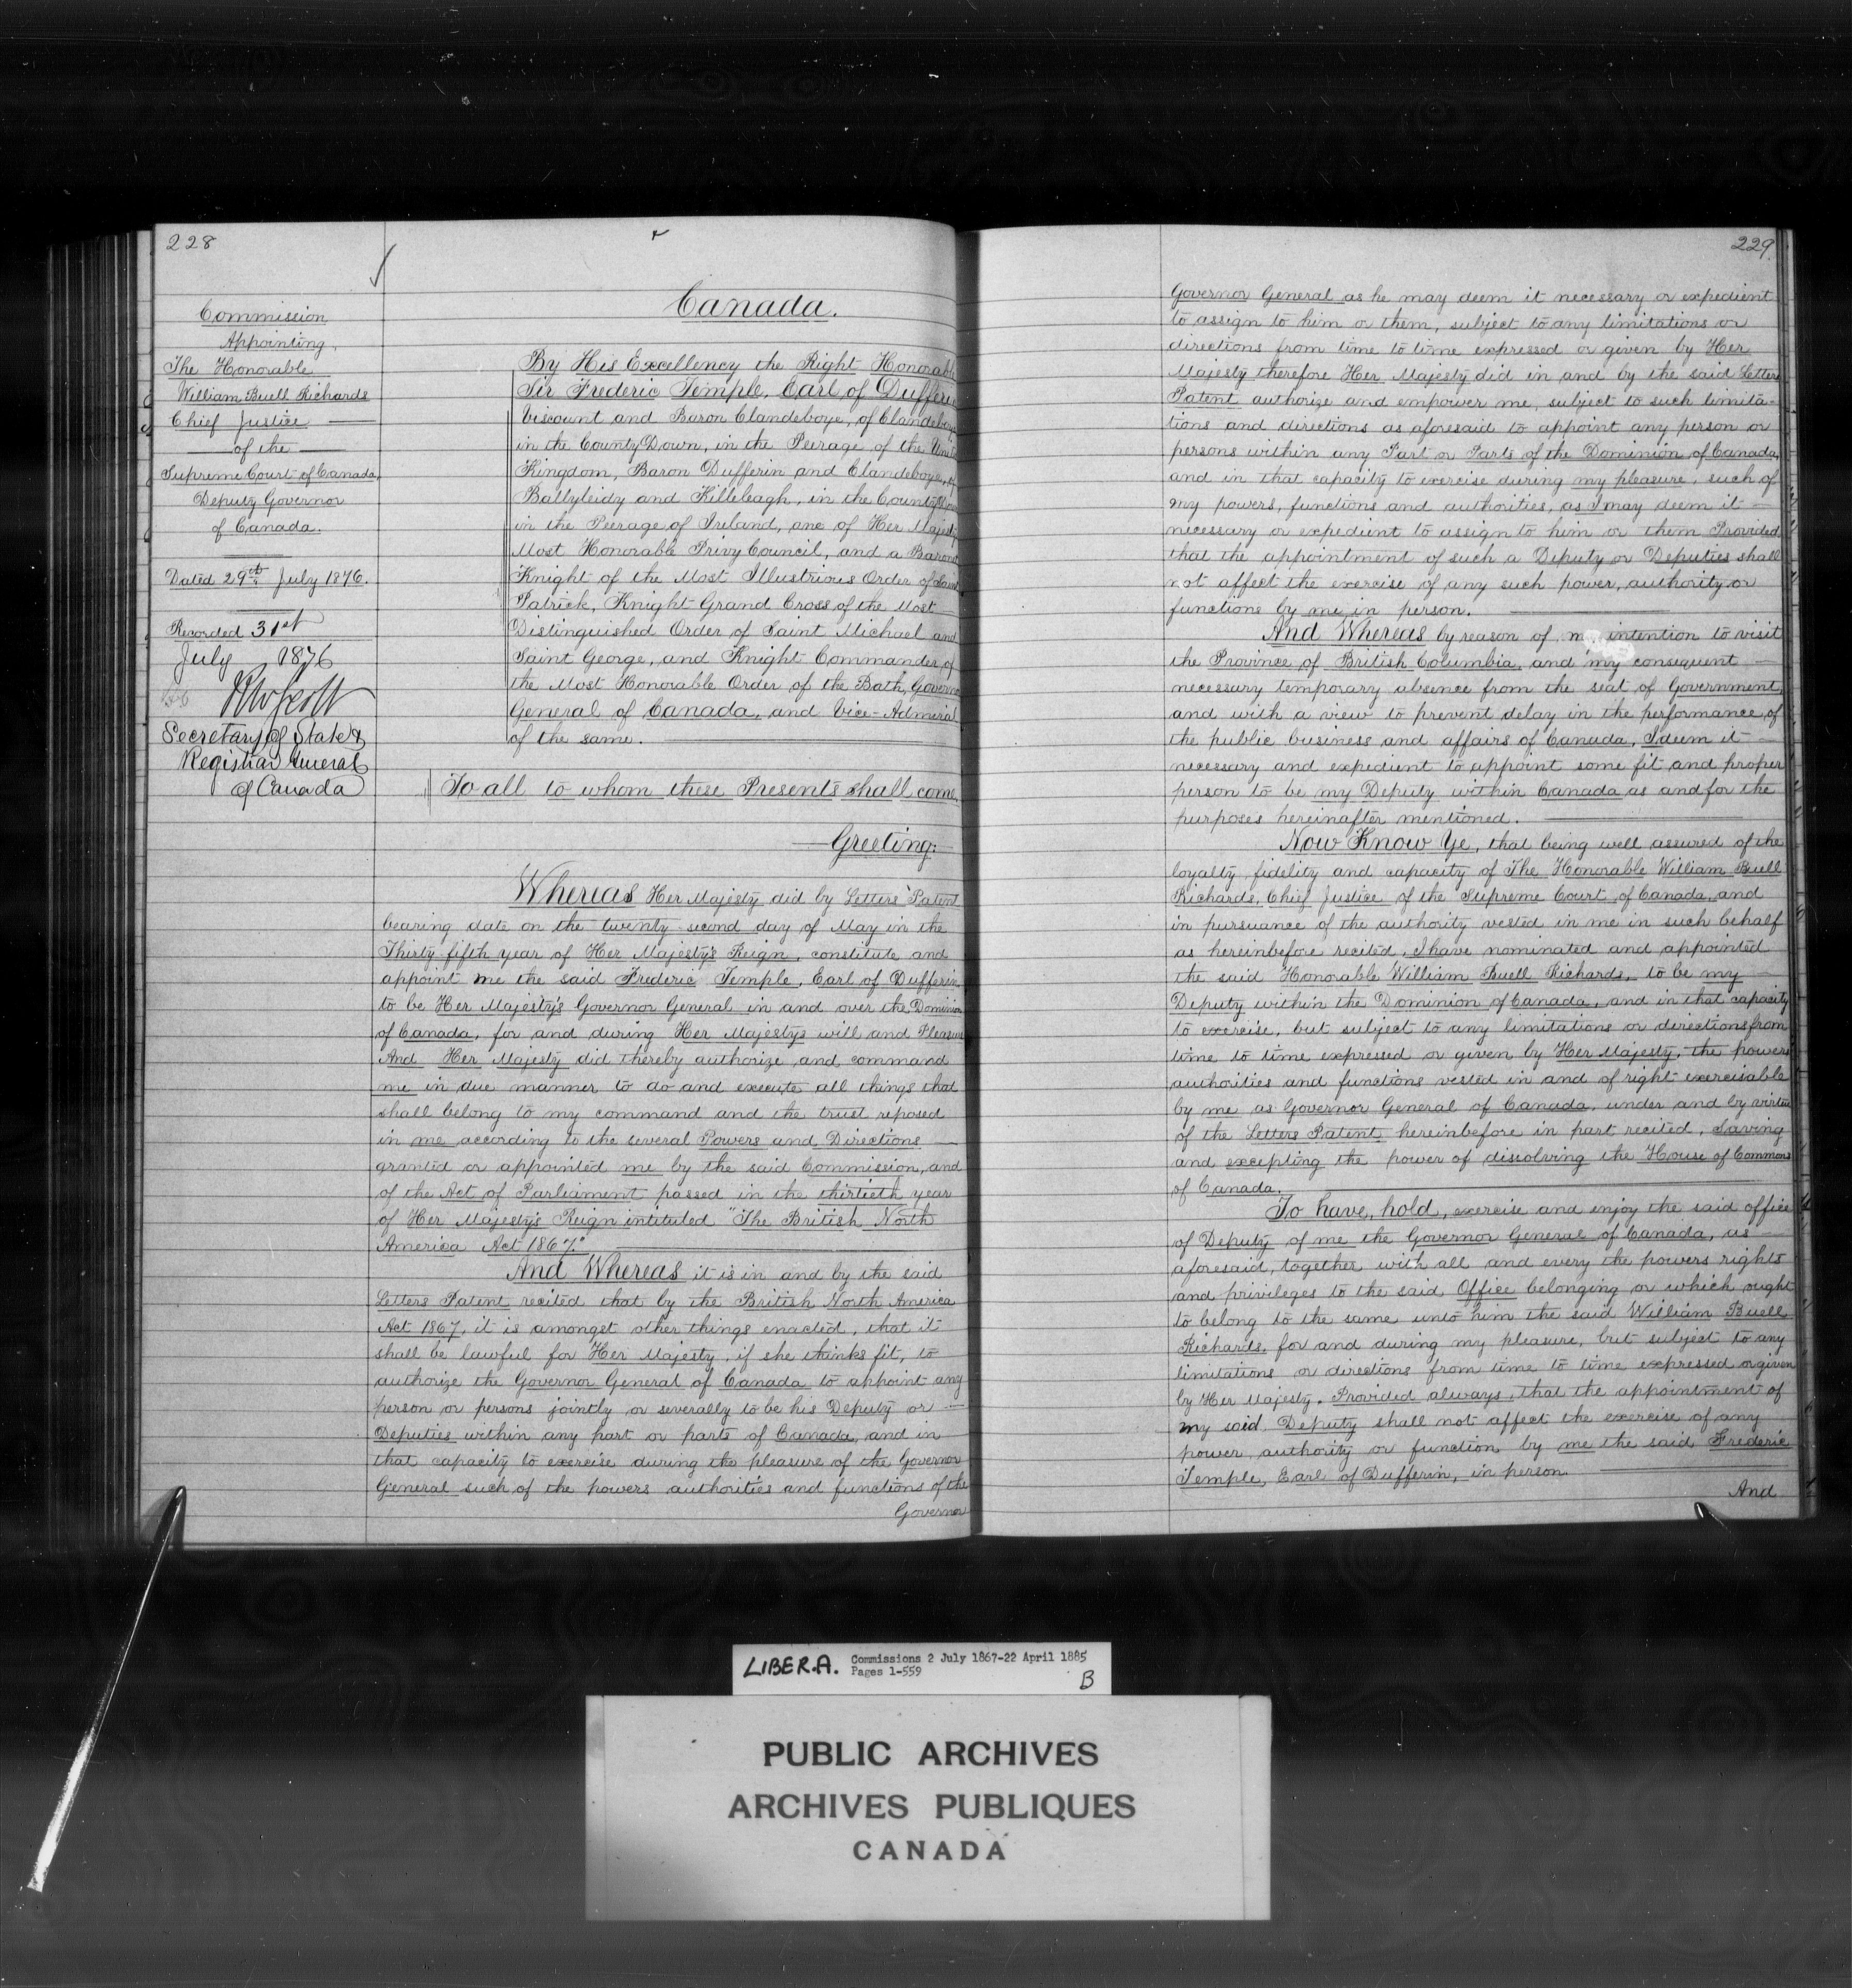 228
Commission
Appointing
The Honorable
William Buell Richards
Chief Justice
of the
Supreme Court of Canada,
Deputy Governor
of Canada.
Dated 29th July 1876.
Recorded 31st
July 1876
RWScott
Secretary of State &
Registrar General
of Canada
Canada.
By His Excellency the Right Honorable
Sir Frederic Temple, Earl of Dufferin
Viscount and Baron Clandeboye, of Clandeboye
in the County Down, in the Peerage of the United
Kingdom, Baron Dufferin and Clandeboye, of
Ballyleidy and Killeleagh, in the County Down
in the Peerage of Ireland, one of Her Majesty's
Most Honorable Privy Council, and a Baronet
Knight of the Most Illustrious Order of Saint
Patrick, Knight Grand Cross of the Most
Distinguished Order of Saint Michael and
Saint George, and Knight Commander of
the Most Honorable Order of the Bath, Governor
General of Canada, and Vice-Admiral
of the same.
To all to whom these Presents shall come
Greeting:
Whereas Her Majesty did by Letters Patent
bearing date on the twenty-second day of May in the
Thirty-fifth year of Her Majesty's Reign, constitute and
appoint me the said Frederic Temple, Earl of Dufferin
to be Her Majesty's Governor General in and over the Dominion
of Canada, for and during Her Majestys will and Pleasure
And Her Majesty did thereby authorize and command
me in due manner to do and execute all things that
shall belong to my command and the trust reposed
in me according to the several Powers and Directions
granted or appointed me by the said Commission, and
of the Act of Parliament passed in the thirtieth year
of Her Majesty's Reign intituled "The British North
America Act 1867."
And Whereas it is in and by the said
Letters Patent recited that by the British North America
Act 1867, it is amongst other things enacted, that it
shall be lawful for Her Majesty, if she thinks fit, to
authorize the Governor General of Canada to appoint any
person or persons jointly or severally to be his Deputy or
Deputies within any part or parts of Canada, and in
that capacity to exercise during the pleasure of the Governor
General such of the powers authorities and functions of the
Governor
229
Governor General as he may deem it necessary or expedient
to assign to him or them, subject to any limitations or
directions from time to time expressed or given by Her
Majesty therefore Her Majesty did in and by the said Letters
Patent authorize and empower me, subject to such limita-
tions and directions as aforesaid to appoint any person or
persons within any Part or Parts of the Dominion of Canada,
and in that capacity to exercise during my pleasure, such of
my powers, functions and authorities, as I may deem it
necessary or expedient to assign to him or them Provided
that the appointment of such a Deputy or Deputies shall
not affect the exercise of any such power, authority or
functions by me in person.
And Whereas by reason of m intention to visit
the Province of British Columbia, and my consequent
necessary temporary absence from the seat of Government,
and with a view to prevent delay in the performance of
the public business and affairs of Canada, I deem it
necessary and expedient to appoint some fit and proper
person to be my Deputy within Canada as and for the
purposes hereinafter mentioned.
Now Know Ye, that being well assured of the
loyalty fidelity and capacity of The Honorable William Buell
Richards, Chief Justice of the Supreme Court of Canada, and
in pursuance of the authority vested in me in such behalf
as hereinbefore recited, I have nominated and appointed
the said Honorable William Buell Richards, to be my
Deputy within the Dominion of Canada, and in that capacity
to exercise, but subject to any limitations or directions from
time to time expressed or given by Her Majesty, the powers
authorities and functions vested in and of right exercisable
by me as Governor General of Canada, under and by virtue
of the Letters Patent, hereinbefore in part recited, Saving
and excepting the power of dissolving the House of Commons
of Canada.
To have, hold, exercise and enjoy the said office
of Deputy of me the Governor General of Canada, as
aforesaid, together with all and every the powers rights
and privileges to the said Office belonging or which ought
to belong to the same unto him the said William Buell
Richards, for and during my pleasure, but subject to any
limitations or directions from time to time expressed or given
by Her Majesty. Provided always, that the appointment of
my said Deputy shall not affect the exercise of any
power, authority or function by me the said Frederic
Temple, Earl of Dufferin, in person.
And
LIBER.A. Commissions 2 July 1867-22 April 1885
Pages 1-559
B
PUBLIC ARCHIVES
ARCHIVES PUBLIQUES
CANADA